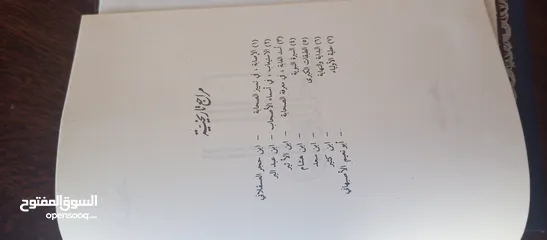 مراجع تاريخية
(١) الإصابة ، في تمييز الصحابة – ابن حجر العسقلاني
(٢) الاستيعاب ، في أسماء الأصحاب – ابن عبد البر
(٣) أسد الغابة ، في معرفة الصحابة – ابن الأثير
(٤) السيرة النبوية – ابن هشام
(٥) الطبقات الكبرى – ابن سعد
(٦) البداية والنهاية – ابن كثير
(٧) حلية الأولياء – أبو نعيم الأصبهاني
السوق المفتوح
opensooq.com